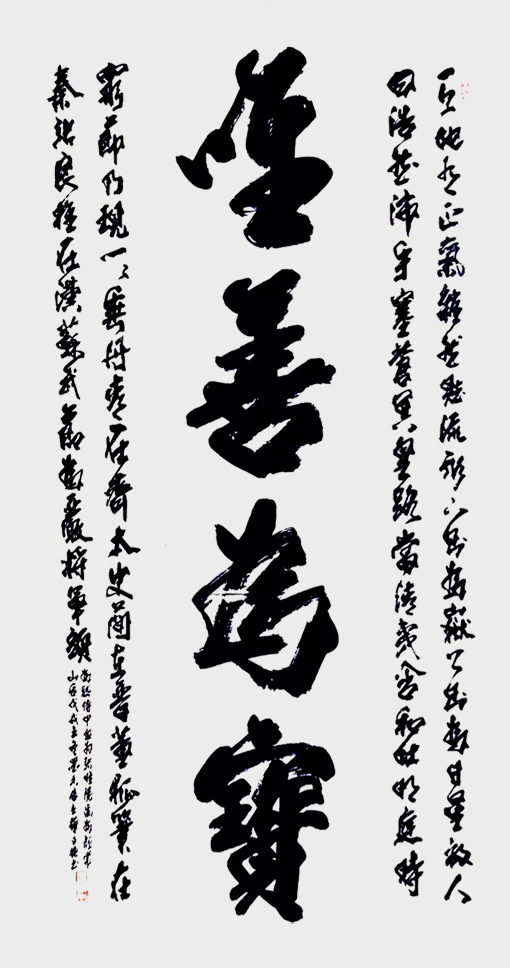 天地有正氣雜然賦流形下則為嶽上則為日星於人
曰浩然沛乎塞蒼冥皇路當清夷含和吐明庭時
唯善為寶
窮節乃現一々垂丹青在齊太史簡在晉董狐筆在
秦張良椎在漢蘇武節為嚴將軍頭